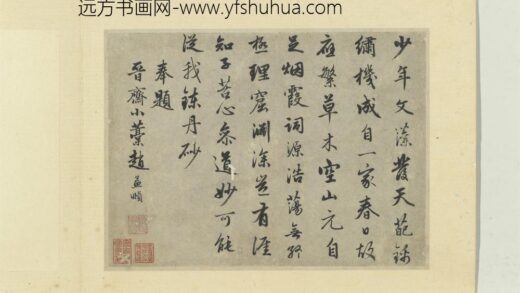 远方书画网-www.yfshuhua.com
少年文藻發天葩錦
繡機成自一家春日故
應繁草木空山元自
足烟霞詞源浩蕩無窮
極理窟淵深豈有涯
知子苦心參道妙可能
從我鍊丹砂
奉題
晉齋小藁趙孟頫